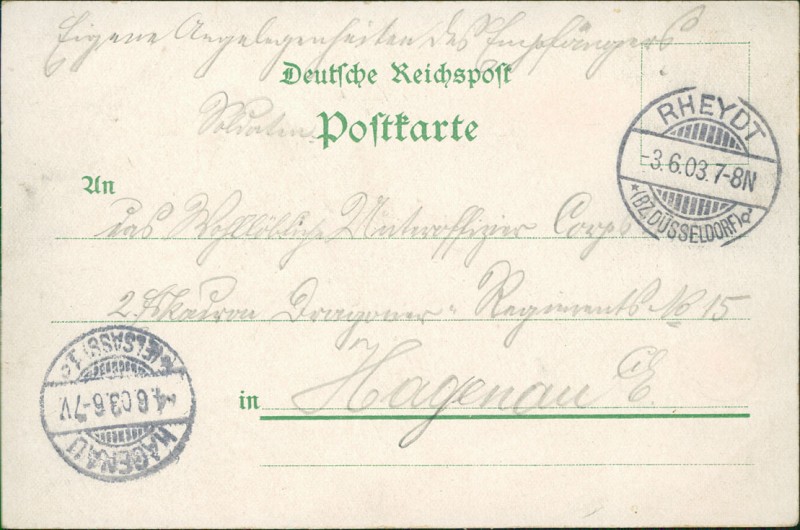 Eigene Angelegenheiten des Empfängers
Deutsche Reichspost
Soldaten Postkarte
RHEYDT
-3.6.03.7-8N
*(BZ.DÜSSELDORF)
An
das Wohllöbliche Unteroffizier Corps
2. Eskadron Dragoner-Regiments No 15
in Hagenau i/E.
HAGENAU
-4.6.03.6-7V.
(ELSASS)